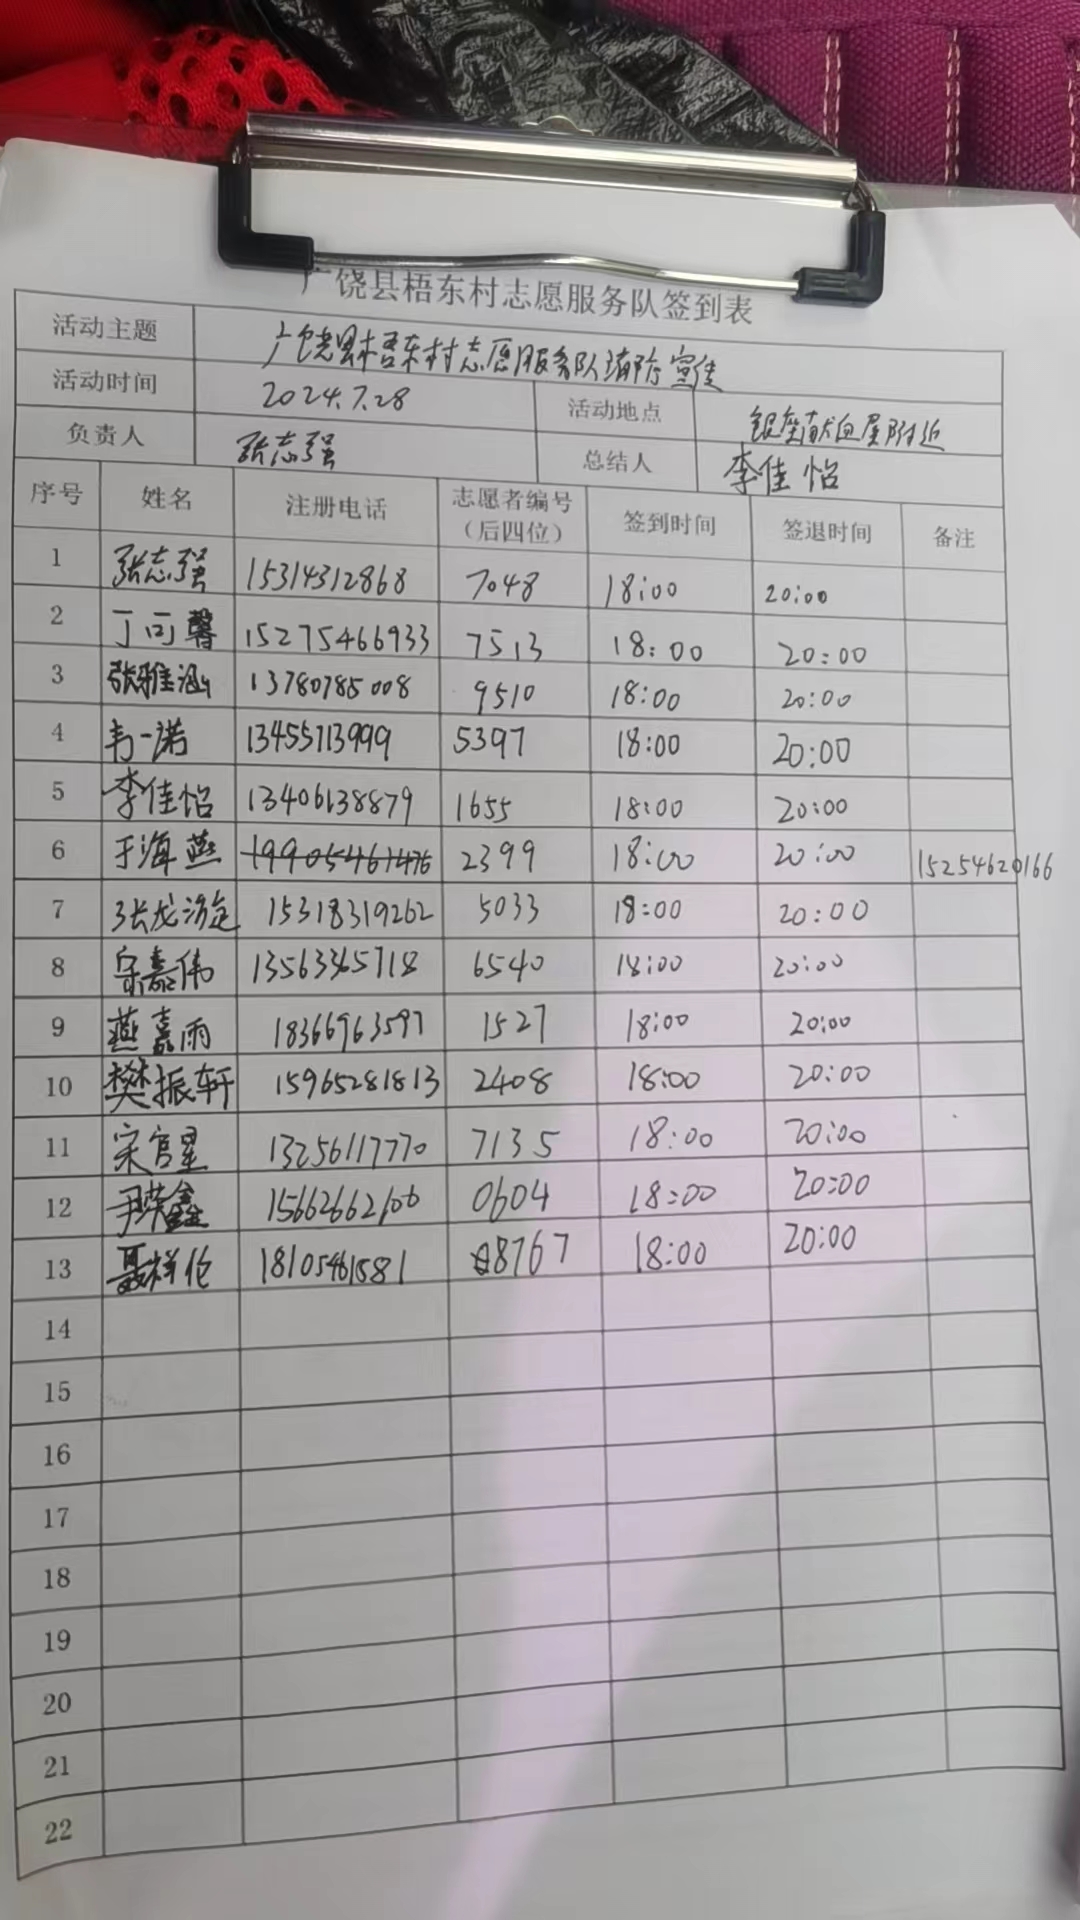 广饶县梧东村志愿服务队签到表
活动主题 广饶县梧东村志愿服务队消防宣传
活动时间 2024.7.28 活动地点 银座献血屋附近
负责人 张志强 总结人 李佳怡
序号 姓名 注册电话 志愿者编号（后四位） 签到时间 签退时间 备注
1 张志强 15314312868 7048 18:00 20:00
2 丁可馨 15275466933 7513 18:00 20:00
3 张雅涵 13780785008 9510 18:00 20:00
4 韦一诺 13455713999 5397 18:00 20:00
5 李佳怡 13406138879 1655 18:00 20:00
6 于海燕 2399 18:00 20:00 15254620166
7 张龙 15318319262 5033 18:00 20:00
8 宋嘉伟 13563365718 6540 18:00 20:00
9 燕嘉雨 18366963597 1527 18:00 20:00
10 樊振轩 15965281813 2408 18:00 20:00
11 宋官星 13256117770 7135 18:00 20:00
12 尹 鑫 15662662100 0604 18:00 20:00
13 聂祥伦 18105461581 8767 18:00 20:00
14
15
16
17
18
19
20
21
22